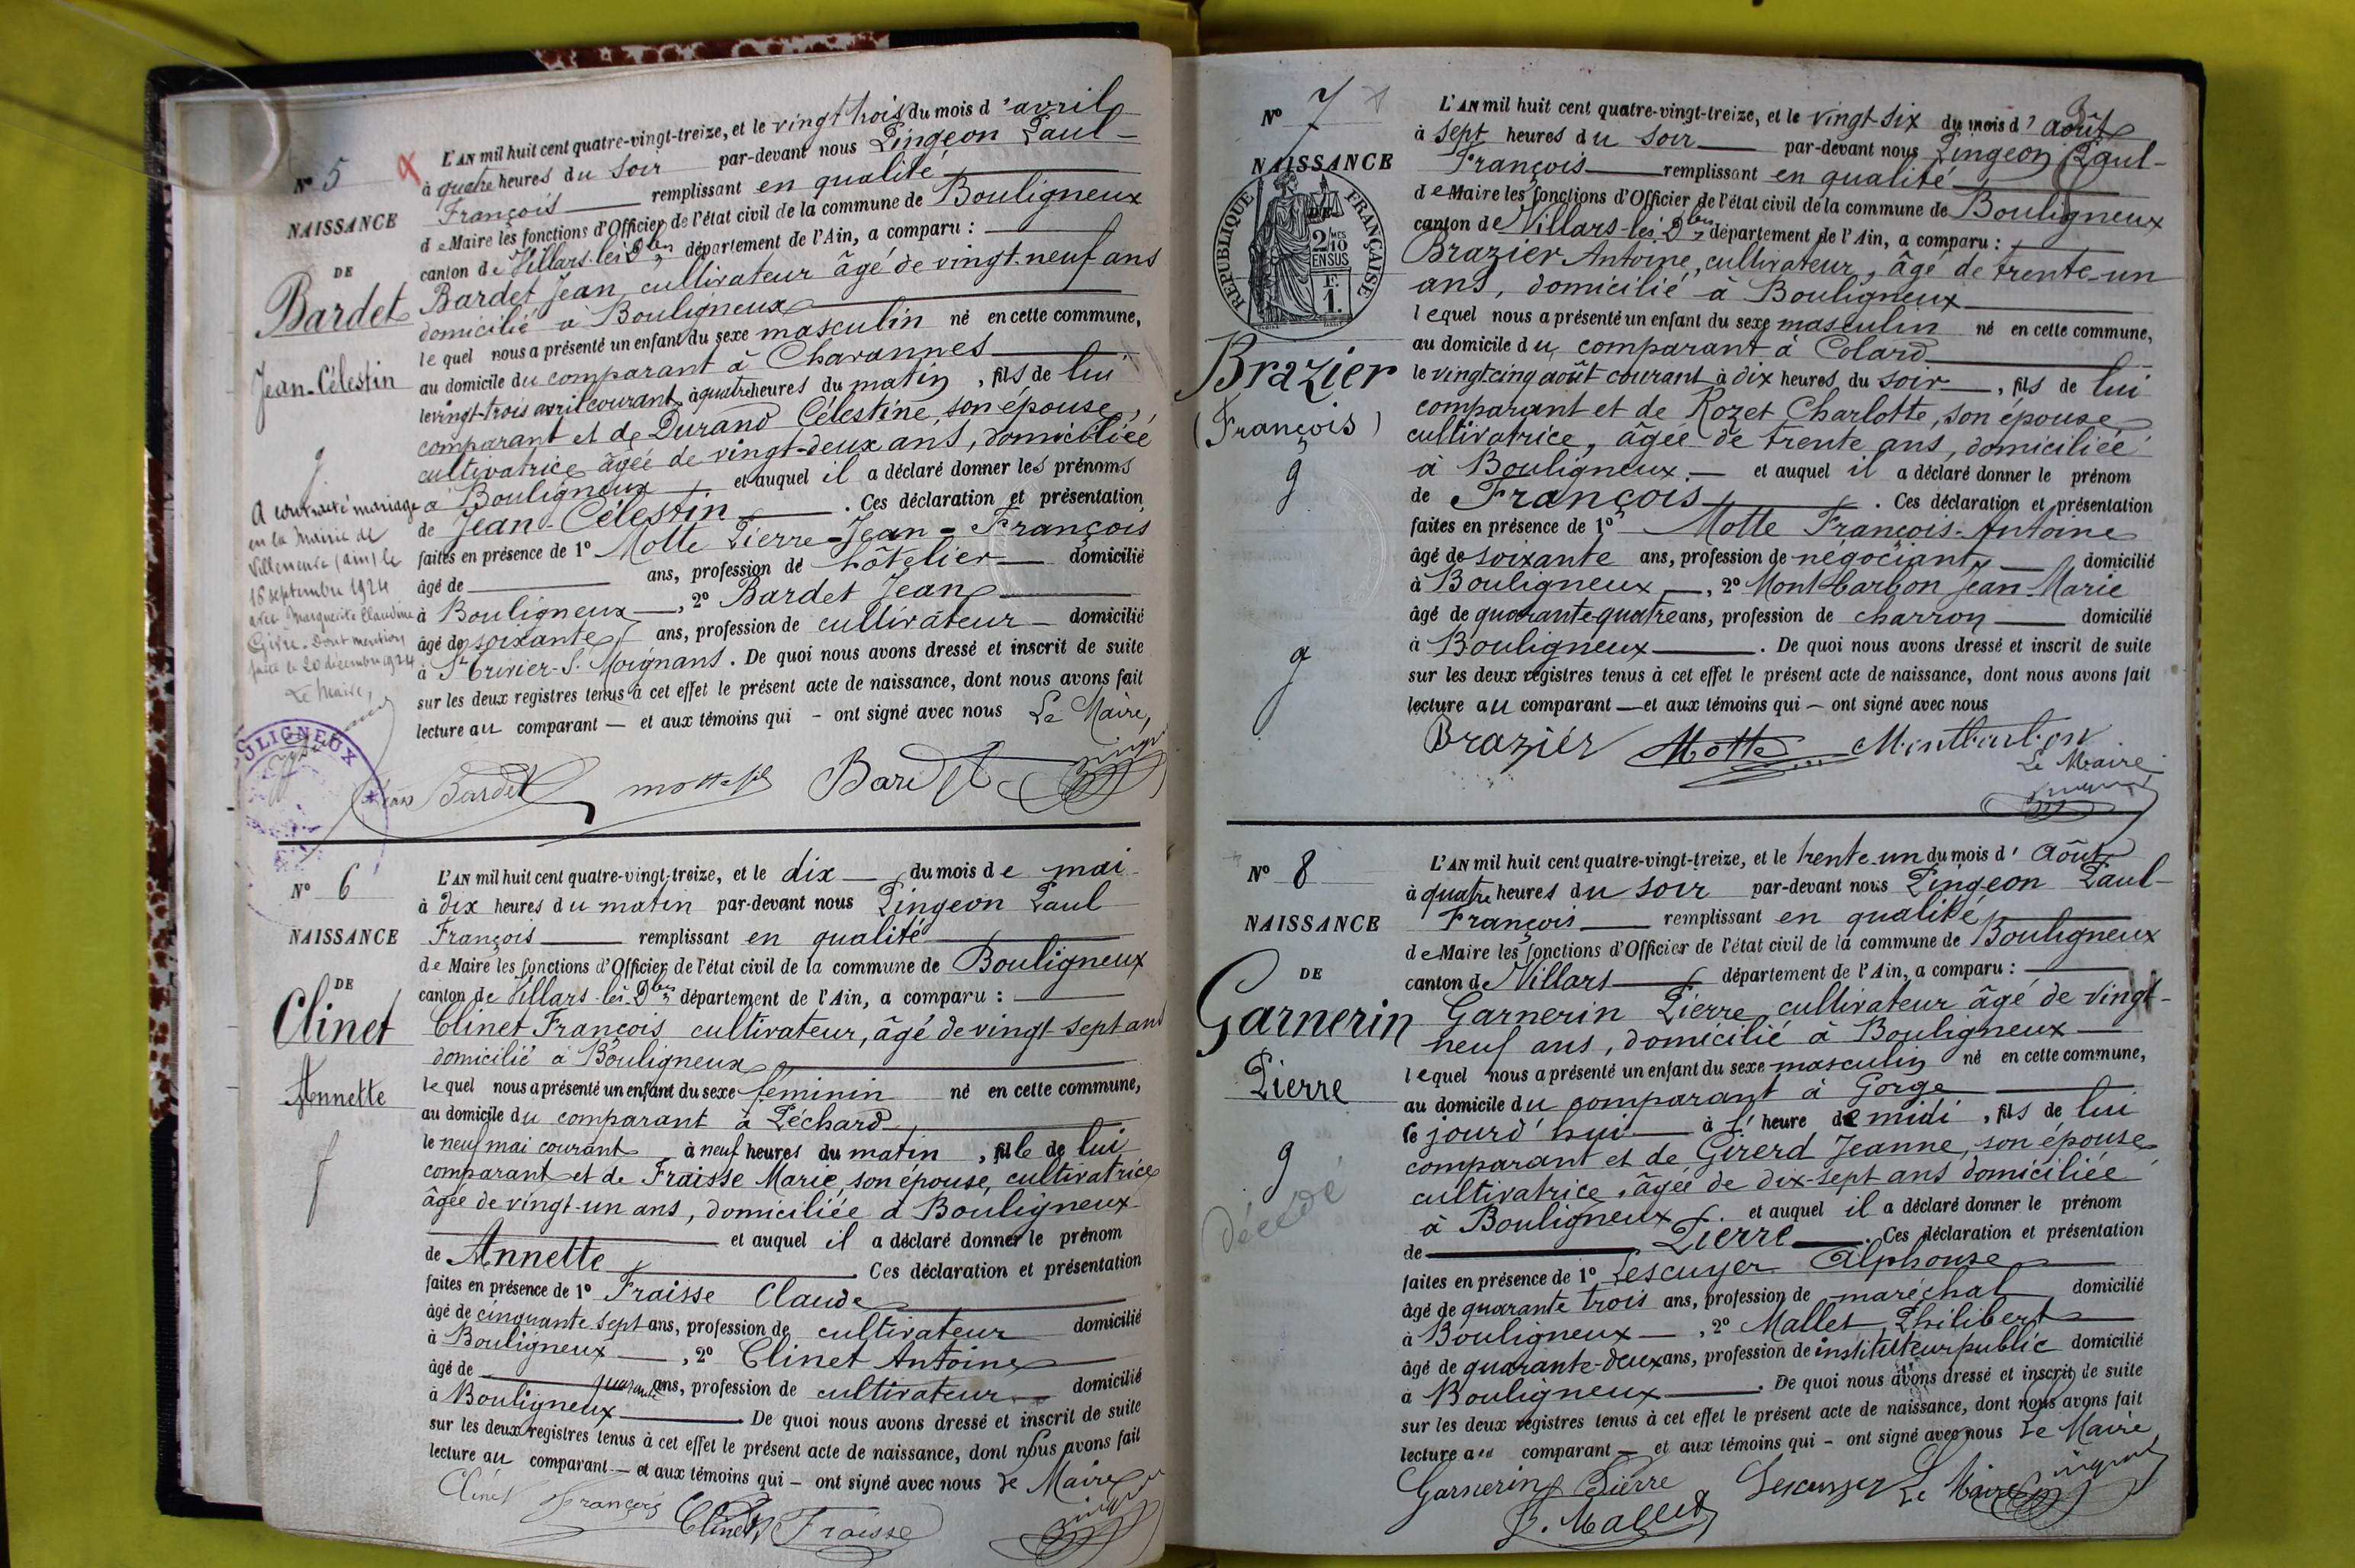 N° 5
NAISSANCE
DE
Bardet
Jean-Célestin
A contracté mariage
en la Mairie de
Villeneuve (Ain) le
18 septembre 1924
avec Marguerite Claudine
Givre. Dont mention
faite le 20 décembre 1924
Le Maire,
L'AN mil huit cent quatre-vingt-treize, et le vingt trois du mois d'avril
à quatre heures du soir par-devant nous Pingeon Paul-
François remplissant en qualité
de Maire les fonctions d'Officier de l'état civil de la commune de Bouligneux
canton de Villars-les-Dbes, département de l'Ain, a comparu :
Bardet Jean, cultivateur âgé de vingt-neuf ans
domicilié à Bouligneux
lequel nous a présenté un enfant du sexe masculin né en cette commune,
au domicile du comparant à Charannes
le vingt-trois avril courant, à quatre heures du matin, fils de lui
comparant et de Durand Célestine, son épouse,
cultivatrice âgée de vingt-deux ans, domiciliée
à Bouligneux et auquel il a déclaré donner les prénoms
de Jean-Célestin. Ces déclaration et présentation
faites en présence de 1° Motte Pierre-Jean-François
âgé de ans, profession de hôtelier domicilié
à Bouligneux, 2° Bardet Jean
âgé de soixante ans, profession de cultivateur domicilié
à St Trivier-S. Moignans. De quoi nous avons dressé et inscrit de suite
sur les deux registres tenus à cet effet le présent acte de naissance, dont nous avons fait
lecture au comparant — et aux témoins qui - ont signé avec nous Le Maire,
BOULIGNEUX
Bardet motte fils Bardet
N° 6
NAISSANCE
DE
Clinet
Annette
f
L'AN mil huit cent quatre-vingt-treize, et le dix du mois de mai
à dix heures du matin par-devant nous Pingeon Paul
François remplissant en qualité
de Maire les fonctions d'Officier de l'état civil de la commune de Bouligneux
canton de Villars-les-Dbes, département de l'Ain, a comparu :
Clinet François cultivateur, âgé de vingt sept ans
domicilié à Bouligneux
lequel nous a présenté un enfant du sexe féminin né en cette commune,
au domicile du comparant à Péchard
le neuf mai courant à neuf heures du matin, fille de lui
comparant et de Fraisse Marie, son épouse, cultivatrice
âgée de vingt-un ans, domiciliée à Bouligneux
et auquel il a déclaré donner le prénom
de Annette. Ces déclaration et présentation
faites en présence de 1° Fraisse Claude
âgé de cinquante sept ans, profession de cultivateur domicilié
à Bouligneux, 2° Clinet Antoine
âgé de quarante ans, profession de cultivateur domicilié
à Bouligneux. De quoi nous avons dressé et inscrit de suite
sur les deux registres tenus à cet effet le présent acte de naissance, dont nous avons fait
lecture au comparant — et aux témoins qui - ont signé avec nous Le Maire
Clinet François Clinet Fraisse
N° 7
NAISSANCE
DE
RÉPUBLIQUE FRANÇAISE
2/10 EN SUS
F.
1.
Brazier
(François)
g
g
L'AN mil huit cent quatre-vingt-treize, et le vingt-six du mois d'août
à sept heures du soir par-devant nous Pingeon Paul-
François remplissant en qualité
de Maire les fonctions d'Officier de l'état civil de la commune de Bouligneux
canton de Villars-les-Dbes, département de l'Ain, a comparu :
Brazier Antoine, cultivateur, âgé de trente-un
ans, domicilié à Bouligneux
lequel nous a présenté un enfant du sexe masculin né en cette commune,
au domicile du comparant à Colard
le vingt cinq août courant à dix heures du soir, fils de lui
comparant et de Rozet Charlotte, son épouse
cultivatrice, âgée de trente ans, domiciliée
à Bouligneux. et auquel il a déclaré donner le prénom
de François. Ces déclaration et présentation
faites en présence de 1° Motte François-Antoine
âgé de soixante ans, profession de négociant domicilié
à Bouligneux, 2° Montbarbon Jean-Marie
âgé de quarante-quatre ans, profession de charron domicilié
à Bouligneux. De quoi nous avons dressé et inscrit de suite
sur les deux registres tenus à cet effet le présent acte de naissance, dont nous avons fait
lecture au comparant — et aux témoins qui — ont signé avec nous
Brazier Motte Montbarbon
Le Maire
N° 8
NAISSANCE
DE
Garnerin
Pierre
g
décédé
L'AN mil huit cent quatre-vingt-treize, et le trente-un du mois d'Août
à quatre heures du soir par-devant nous Pingeon Paul-
François remplissant en qualité
de Maire les fonctions d'Officier de l'état civil de la commune de Bouligneux
canton de Villars département de l'Ain, a comparu :
Garnerin Pierre, cultivateur âgé de vingt-
neuf ans, domicilié à Bouligneux
lequel nous a présenté un enfant du sexe masculin né en cette commune,
au domicile du comparant à Gorge
le jourd'hui à l'heure de midi, fils de lui
comparant et de Girerd Jeanne, son épouse
cultivatrice, âgée de dix-sept ans domiciliée
à Bouligneux. et auquel il a déclaré donner le prénom
de Pierre. Ces déclaration et présentation
faites en présence de 1° Lescuyer Alphonse
âgé de quarante trois ans, profession de maréchal domicilié
à Bouligneux, 2° Mallet Philibert
âgé de quarante-deux ans, profession de instituteur public domicilié
à Bouligneux. De quoi nous avons dressé et inscrit de suite
sur les deux registres tenus à cet effet le présent acte de naissance, dont nous avons fait
lecture au comparant — et aux témoins qui - ont signé avec nous Le Maire
Garnerin Pierre Lescuyer Le Maire
P. Mallet